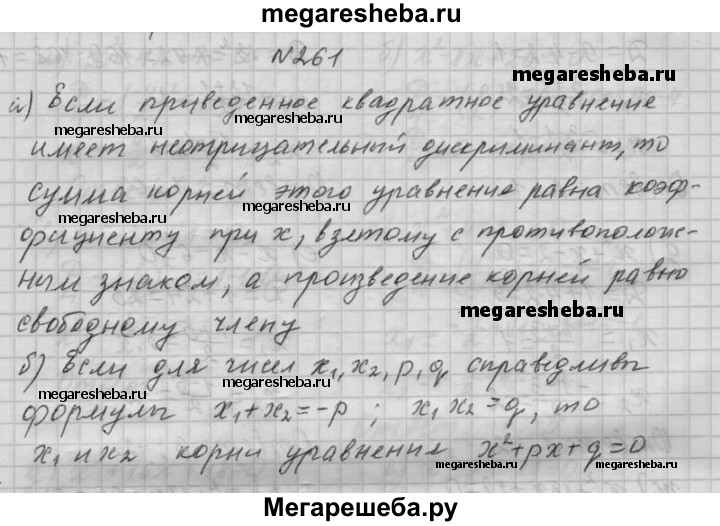 megaresheba.ru
№261
megaresheba.ru
а) Если приведенное квадратное уравнение
megaresheba.ru megaresheba.ru
имеет неотрицательный дискриминант, то
сумма корней этого уравнение равна коэф-
megaresheba.ru megaresheba.ru
фициенту при x, взятому с противополож-
ным знаком, а произведение корней равно
megaresheba.ru
свободному члену
б) Если для чисел x₁, x₂, p, q справедливы
megaresheba.ru megaresheba.ru megaresheba.ru
формулы x₁+x₂=-p ; x₁ x₂=q, то
x₁ и x₂ корни уравнения x²+px+q=0
megaresheba.ru megaresheba.ru
Мегарешеба.ру